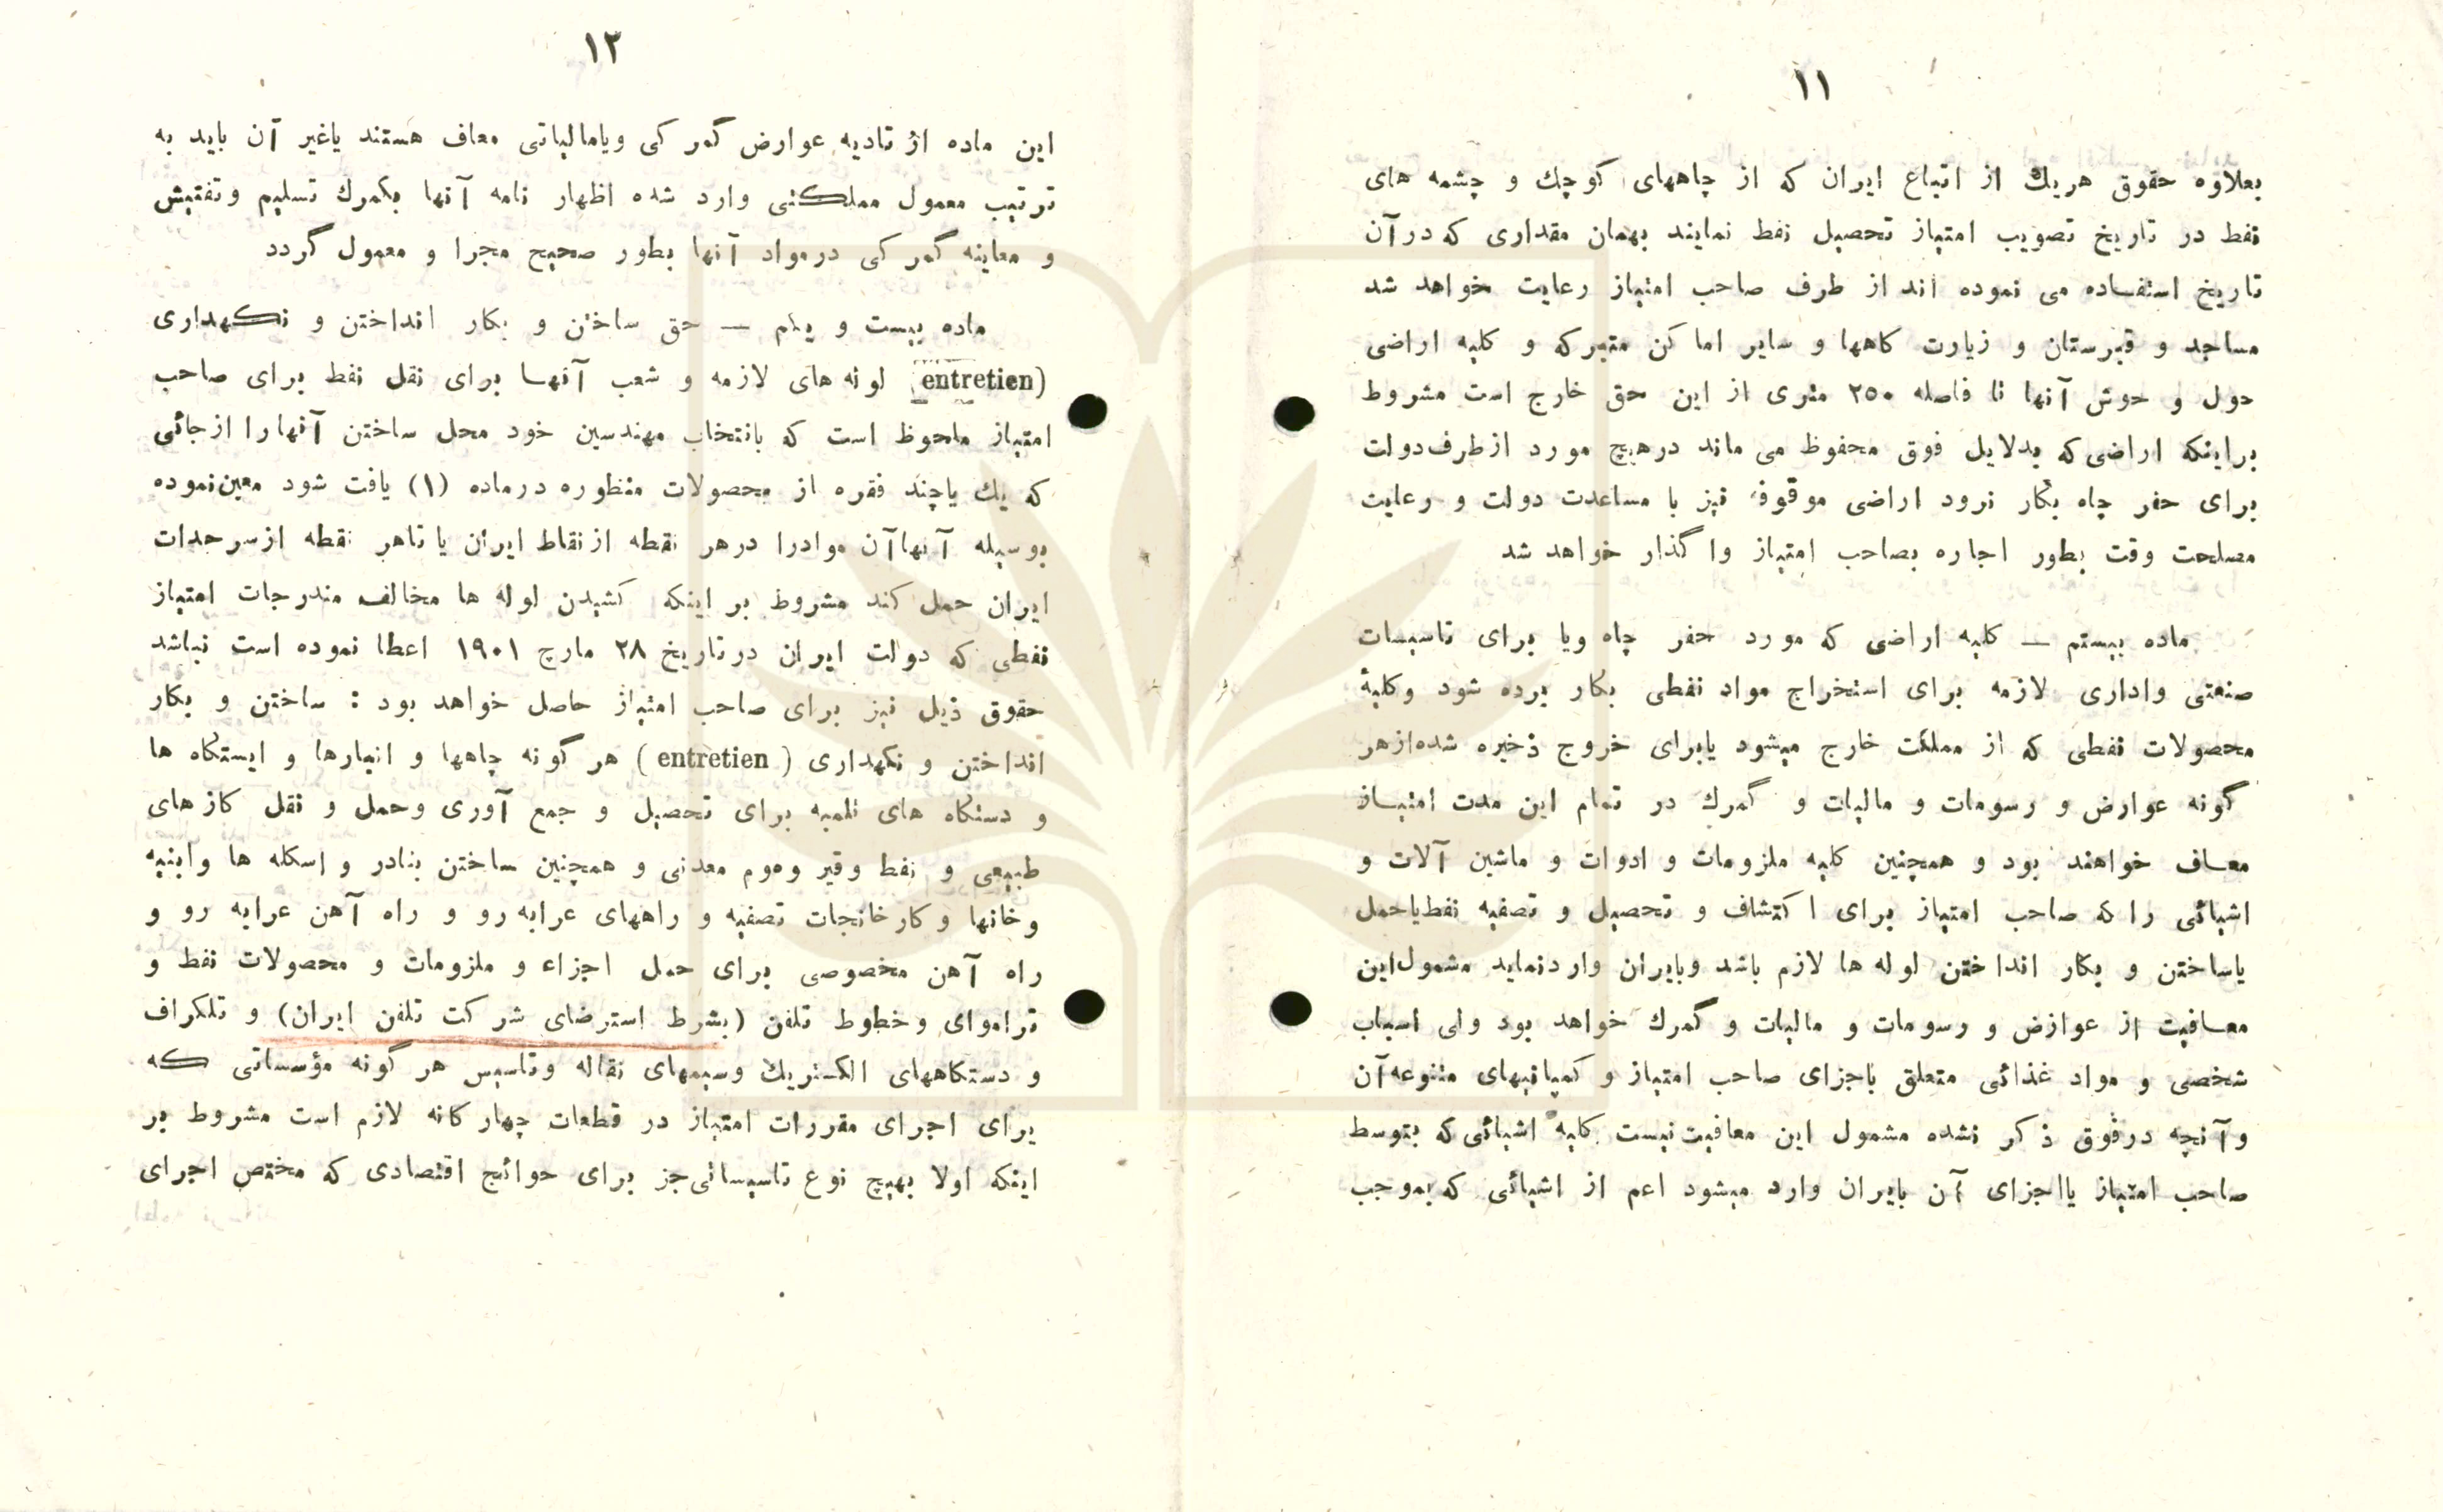 ۱۱
بعلاوه حقوق هریك از اتباع ایران که از چاههای کوچك و چشمه های
نفط در تاریخ تصویب امتیاز تحصیل نفط نمایند بهمان مقداری که در آن
تاریخ استفاده می نموده اند از طرف صاحب امتیاز رعایت خواهد شد
مساجد و قبرستان و زیارت کاهها و سایر اما کن متبرکه و کلیه اراضی
حول و حوش آنها تا فاصله ۲۵۰ متری از این حق خارج است مشروط
براینکه اراضی که بدلایل فوق محفوظ می ماند در هیچ مورد از طرف دولت
برای حفر چاه بکار نرود اراضی موقوفه نیز با مساعدت دولت و رعایت
مصلحت وقت بطور اجاره بصاحب امتیاز وا گذار خواهد شد
ماده بیستم — کلیه اراضی که مورد حفر چاه ویا برای تاسیسات
صنعتی واداری لازمه برای استخراج مواد نفطی بکار برده شود وکلیهٔ
محصولات نفطی که از مملکت خارج میشود یابرای خروج ذخیره شده از هر
گونه عوارض و رسومات و مالیات و گمرك در تمام این مدت امتیاز
معاف خواهند بود و همچنین کلیه ملزومات و ادوات و ماشین آلات و
اشیائی را که صاحب امتیاز برای ا کتشاف و تحصیل و تصفیه نفط یاحمل
یاساختن و بکار انداختن لوله ها لازم باشد وبایران وارد نماید مشمول این
معافیت از عوارض و رسومات و مالیات و گمرك خواهد بود ولی اسباب
شخصی و مواد غذائی متعلق باجزای صاحب امتیاز و کمپانیهای متنوعه آن
و آنچه در فوق ذ کر نشده مشمول این معافیت نیست کلیه اشیائی که بتوسط
صاحب امتیاز یااجزای آن بایران وارد میشود اعم از اشیائی که بموجب
۱۲
این ماده از تادیه عوارض گمر کی ویامالیاتی معاف هستند یاغیر آن باید به
ترتیب معمول مملکتی وارد شده اظهار نامه آنها بکمرك تسلیم وتفتیش
و معاینه گمر کی در مواد آنها بطور صحیح مجرا و معمول گردد
ماده بیست و یکم — حق ساختن و بکار انداختن و نکهداری
(entretien) لوله های لازمه و شعب آنها برای نقل نفط برای صاحب
امتیاز ملحوظ است که بانتخاب مهندسین خود محل ساختن آنهارا ازجائی
که یك یاچند فقره از محصولات منظوره در ماده (۱) یافت شود معین نموده
بوسیله آنها آن موادرا در هر نقطه از نقاط ایران یا تاهر نقطه از سرحدات
ایران حمل کند مشروط بر اینکه کشیدن لوله ها مخالف مندرجات امتیاز
نفطی که دولت ایران در تاریخ ۲۸ مارچ ۱۹۰۱ اعطا نموده است نباشد
حقوق ذیل نیز برای صاحب امتیاز حاصل خواهد بود : ساختن و بکار
انداختن و نکهداری ( entretien ) هر گونه چاهها و انبارها و ایستکاه ها
و دستکاه های تلمبه برای تحصیل و جمع آوری وحمل و نقل کازهای
طبیعی و نفط وقیر وموم معدنی و همچنین ساختن بنادر و اسکله ها وابنیه
وخانها وکارخانجات تصفیه و راههای عرابه رو و راه آهن عرابه رو و
راه آهن مخصوصی برای حمل اجزاء و ملزومات و محصولات نفط و
تراموای وخطوط تلفن (بشرط استرضای شر کت تلفن ایران) و تلکراف
و دستکاههای الکتریك وسیمهای نقاله وتاسیس هر گونه مؤسساتی که
برای اجرای مقررات امتیاز در قطعات چهار کانه لازم است مشروط بر
اینکه اولا بهیچ نوع تاسیساتی جز برای حوائج اقتصادی که مختص اجرای